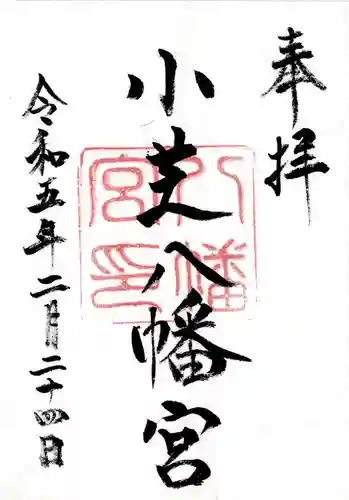 奉拝
小芝八幡宮
八幡
宮印
令和五年二月二十四日